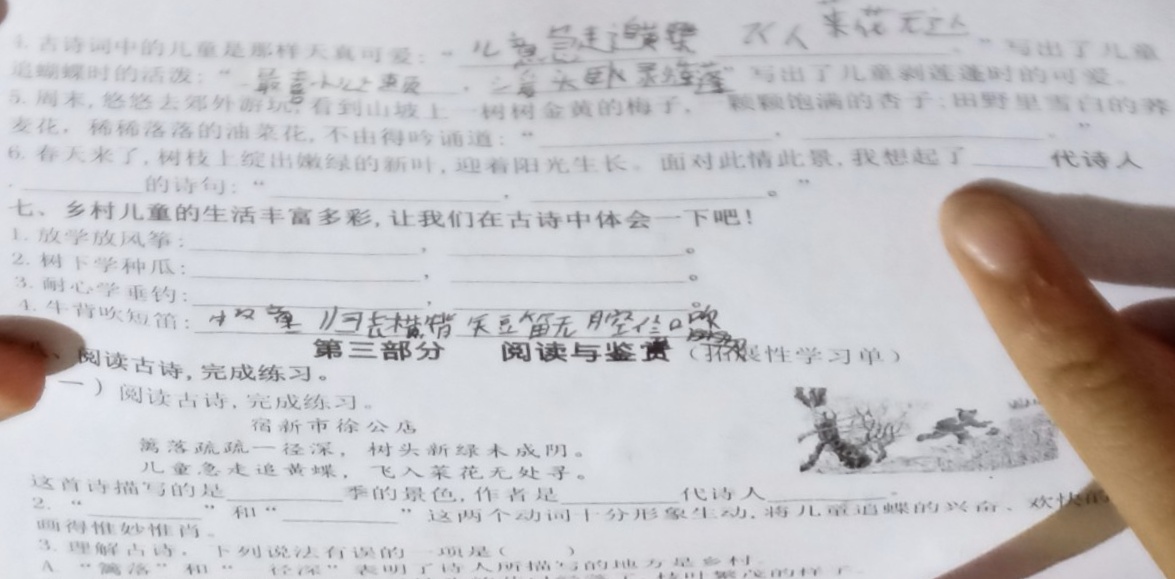 4. 古诗词中的儿童是那样天真可爱:“儿童急走追黄蝶 飞入菜花无处。”写出了儿童
追蝴蝶时的活泼;“最喜小儿,头卧剥莲蓬”写出了儿童剥莲蓬时的可爱。
5. 周末,悠悠去郊外游玩,看到山坡上一树树金黄的梅子,一颗颗饱满的杏子;田野里雪白的荞
麦花,稀稀落落的油菜花,不由得吟诵道:“ , 。”
6. 春天来了,树枝上绽出嫩绿的新叶,迎着阳光生长。面对此情此景,我想起了 代诗人
的诗句:“ , 。”
七、乡村儿童的生活丰富多彩,让我们在古诗中体会一下吧!
1. 放学放风筝: , 。
2. 树下学种瓜: , 。
3. 耐心学垂钓: , 。
4. 牛背吹短笛:牧童归去横背 短笛无腔信口吹
第三部分 阅读与鉴赏(拓展性学习单)
阅读古诗,完成练习。
一)阅读古诗,完成练习。
宿新市徐公店
篱落疏疏一径深,树头新绿未成阴。
儿童急走追黄蝶,飞入菜花无处寻。
这首诗描写的是 季的景色,作者是 代诗人 。
2. “ ”和“ ”这两个动词十分形象生动,将儿童追蝶的兴奋、欢快的
画得惟妙惟肖。
3. 理解古诗,下列说法有误的一项是( )
A. “篱落”和“一径深”表明了诗人所描写的地方是乡村。
枝叶繁茂的样子